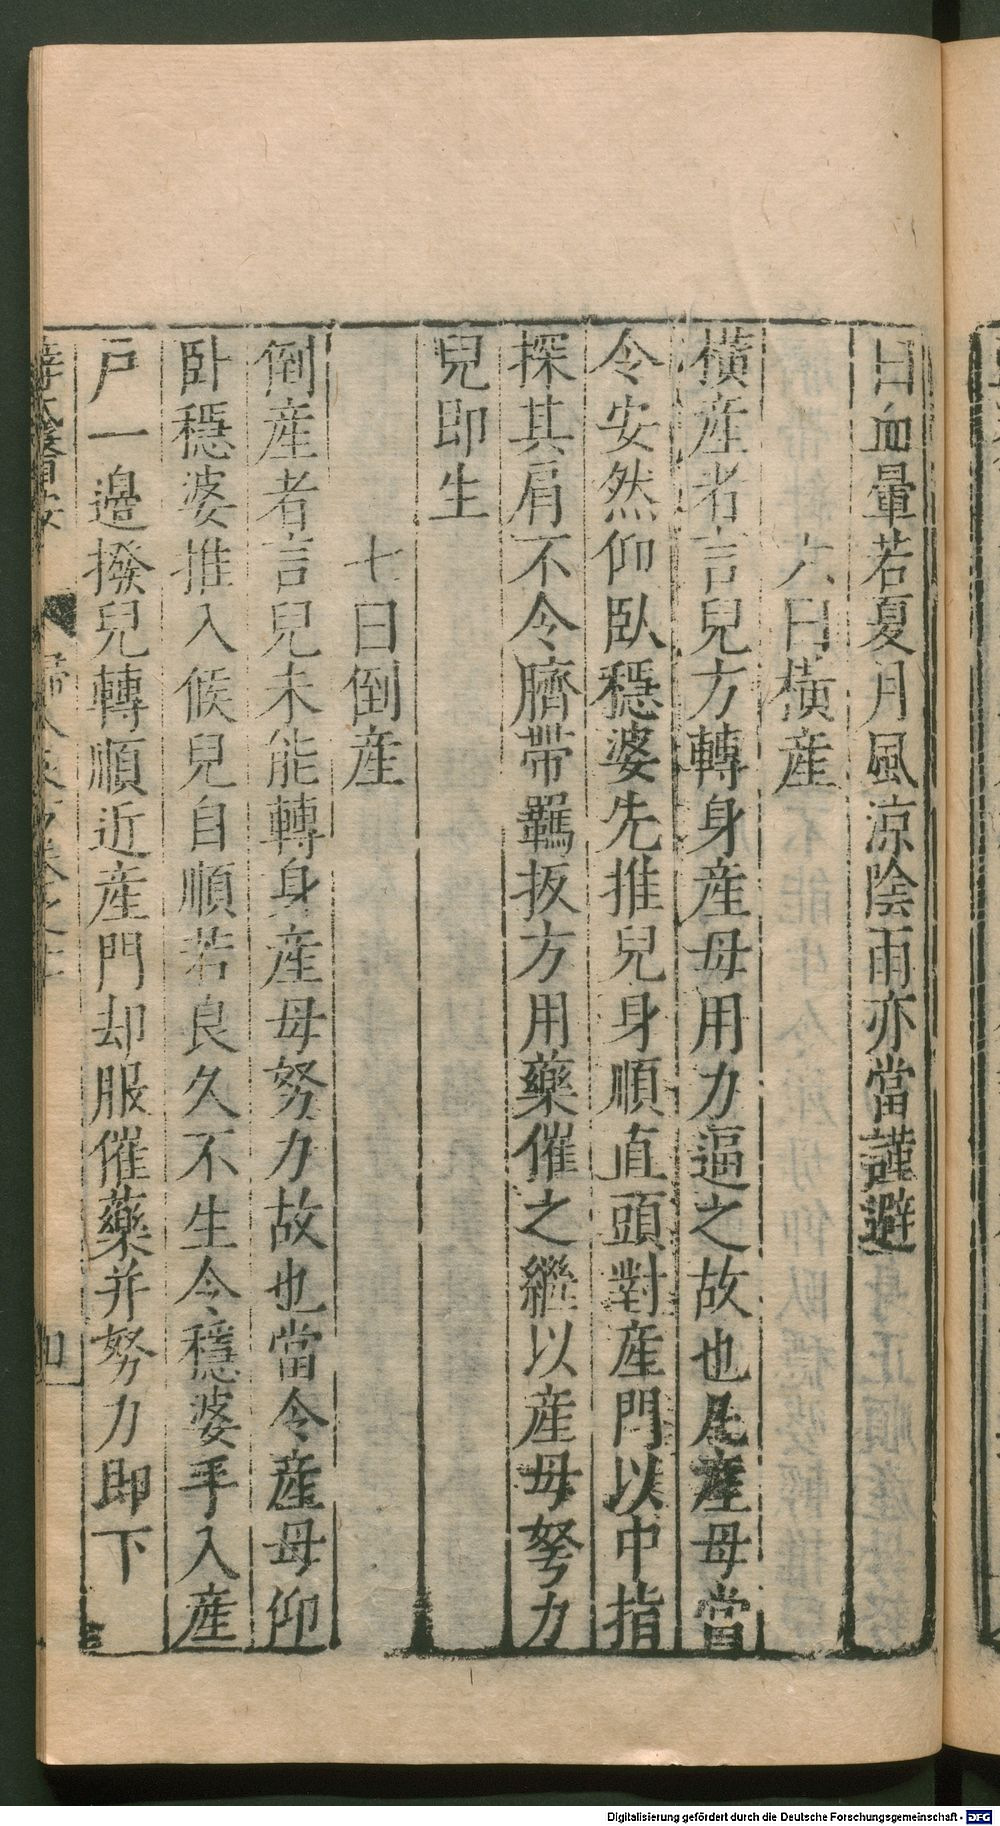 日血暈若夏月風涼陰雨亦當謹避
六曰橫産
橫産者言兒方轉身産母用力逼之故也凡産母當
令安然仰臥穩婆先推兒身順直頭對産門以中指
探其肩不令臍帶羈扳方用藥催之繼以産母努力
兒即生
七曰倒産
倒産者言兒未能轉身産母努力故也當令産母仰
卧穩婆推入候兒自順若良久不生令穩婆手入産
戶一邉撥兒轉順近産門却服催藥并努力即下
Digitalisierung gefördert durch die Deutsche Forschungsgemeinschaft - DFG